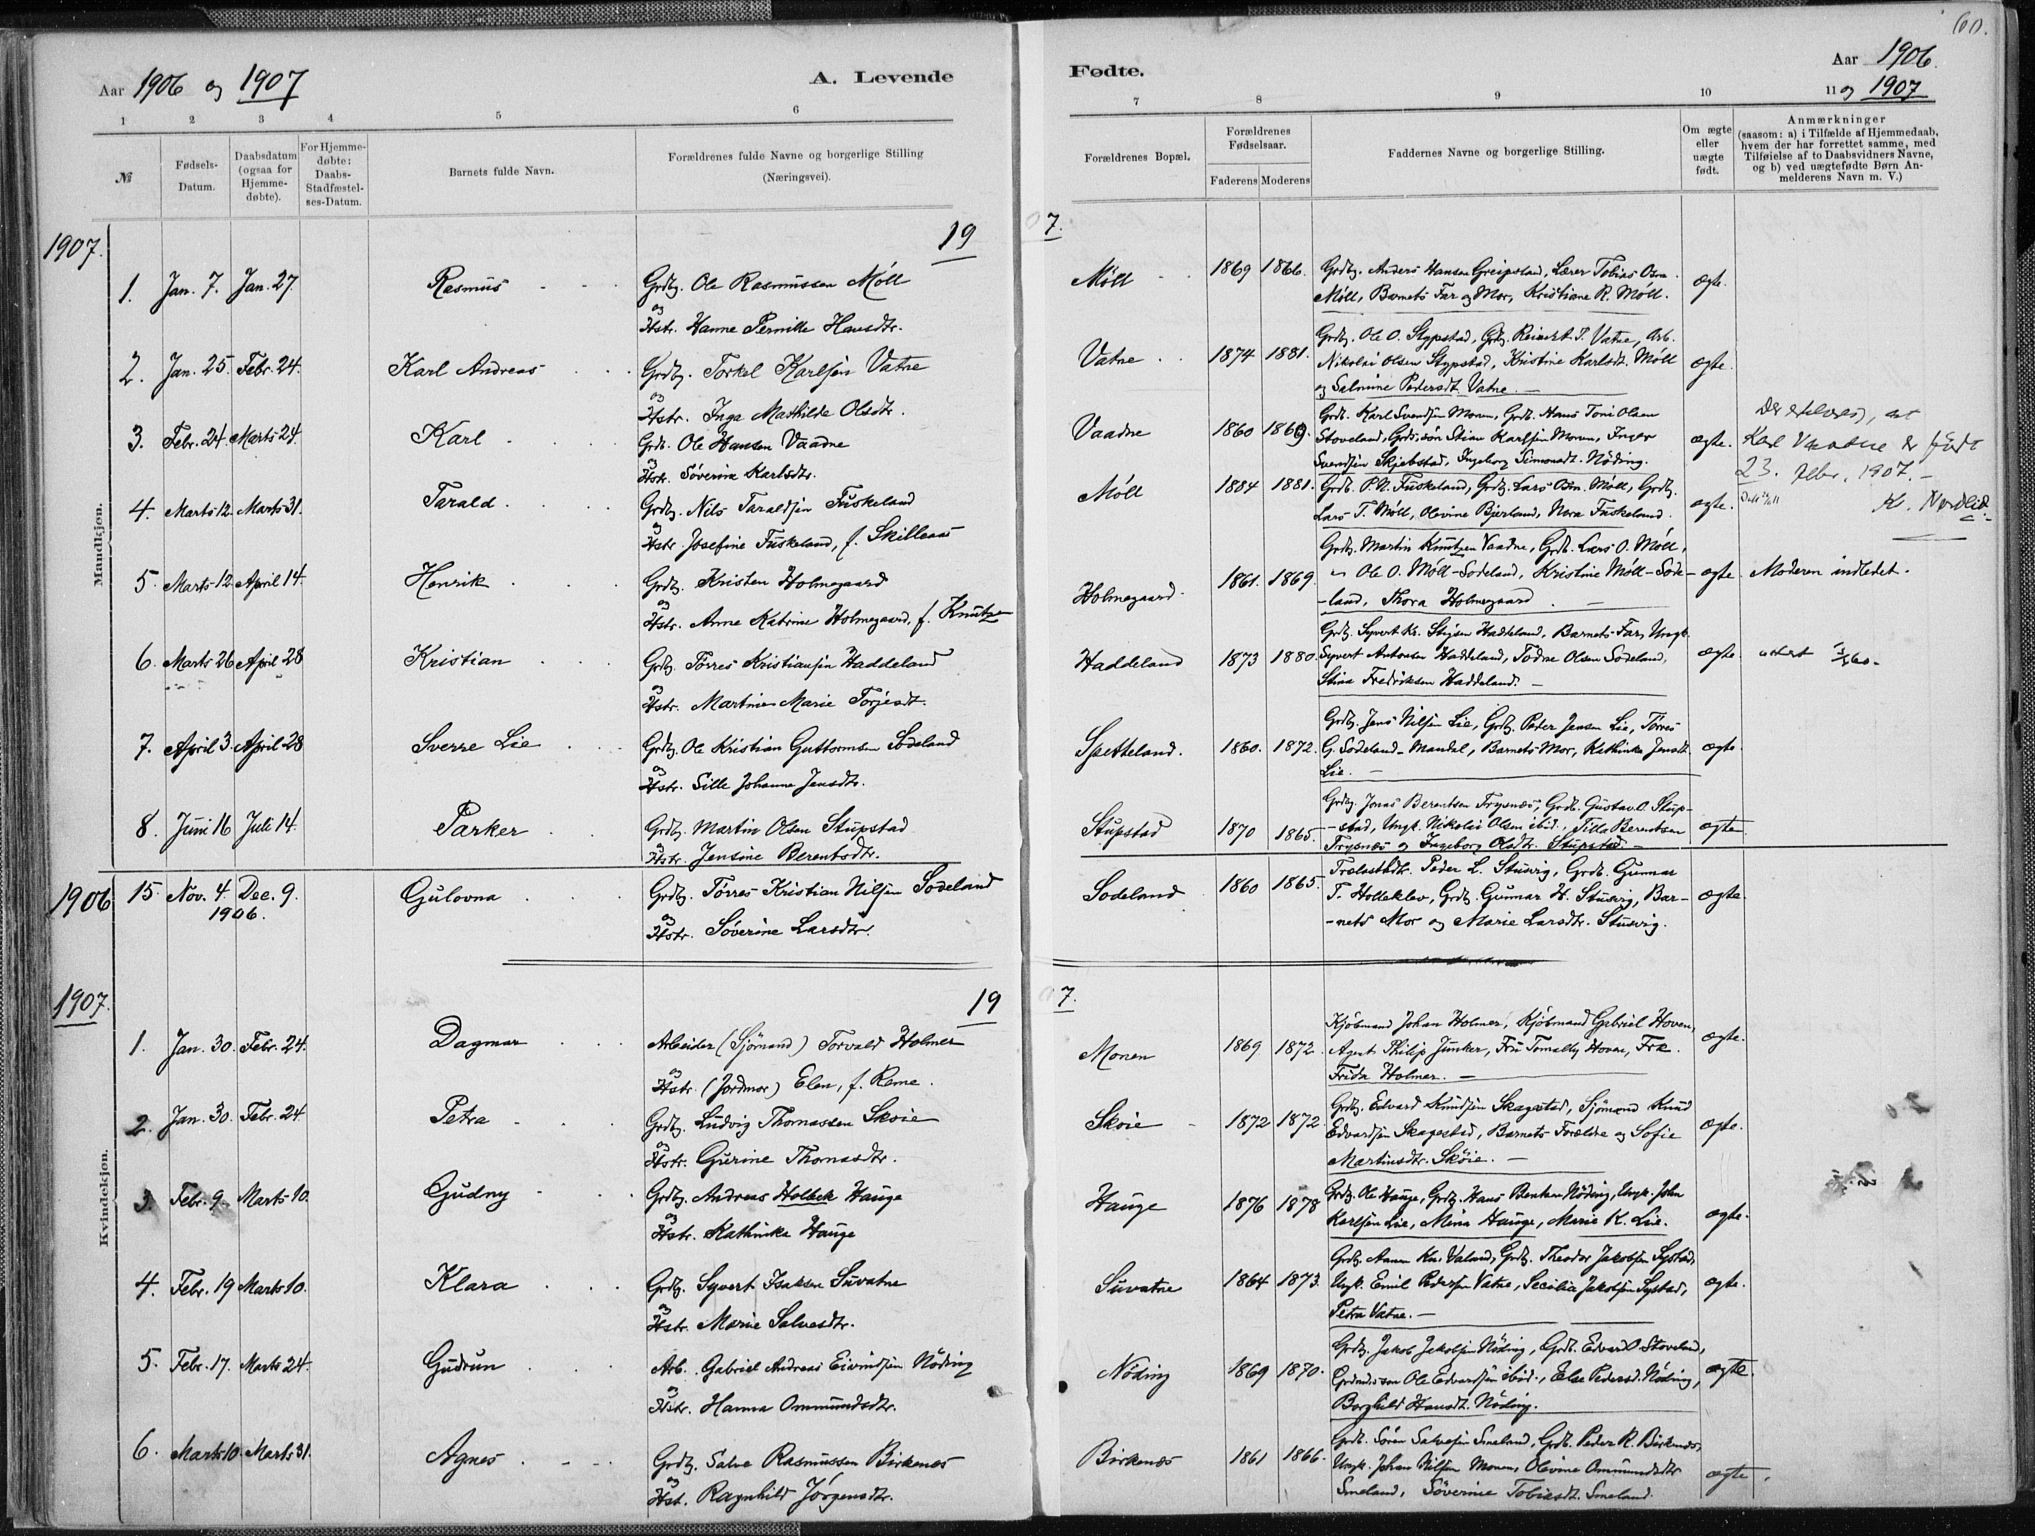 60.
Aar 1906 og 1907
A. Levende
Fødte.
Aar 1906
og 1907
1 2 3 4 5 6 7 8 9 10 11
№
Fødsels-
Datum.
Daabsdatum
(ogsaa for
Hjemme-
døbte).
For Hjemme-
døbte:
Daabs-
Stadfæstel-
ses-Datum.
Barnets fulde Navn.
Forældrenes fulde Navne og borgerlige Stilling
(Næringsvei).
Forældrenes Bopæl.
Forældrenes
Fødselsaar.
Faderens Moderens
Faddernes Navne og borgerlige Stilling.
Om ægte
eller
uægte
født.
Anmærkninger
(saasom: a) i Tilfælde af Hjemmedaab,
hvem der har forrettet samme, med
Tilføielse af to Daabsvidners Navne,
og b) ved uægtefødte Børn An-
melderens Navn m. V.)
Mandkjøn.
1907. 19 07.
1. Jan. 7. Jan. 27. Rasmus Grdbg. Ole Rasmussen Møll
og
Hstr. Hanne Pernille Hansdtr.
Møll 1869 1866. Grdbg. Anders Hansen Greipstad, Lærer Tobias Osm.
Møll, Barnets Far og Mor, Kristiane R. Møll. ægte.
2. Jan. 25. Febr. 24. Karl Andreas Grdbg. Torkel Karlsen Vatne
og
Hstr. Inga Mathilde Olsdtr.
Vatne 1874 1881. Grdbg. Ole O. Stypstad, Grdbg. Reinert T. Vatne, Arb.
Nikolai Olsen Stypstad, Kristine Karlsdt. Møll
og Salmine Pedersdt. Vatne. ægte.
3. Febr. 24. Marts 24. Karl Grdb. Ole Hansen Vaadne
og
Hstr. Søverine Karlsdtr.
Vaadne 1860 1869. Grdb. Karl Svendsen Monen, Grdb. Hans Toni Olsen
Stoveland, Grdb.søn Stian Karlsen Monen, Inger
Svendsen Skjebstad, Ingeborg Simonsdt. Nøding. ægte.
Der erklæres, at
Karl Vaadne er født
23. febr. 1907.
K. Nordlid.
4. Marts 12. Marts 31. Tarald Grdbg. Nils Taraldsen Fuskeland
og
Hstr. Josefine Fuskeland, f. Skilleaas
Møll 1884 1881. Grdb. P. N. Fuskeland, Grdbg. Lars Osm. Møll, Grdbg.
Lars T. Møll, Olevine Bjerland, Nora Fuskeland. ægte.
5. Marts 12. April 14. Henrik Grdbg. Kristen Holmegaard
og
Hstr. Anne Katrine Holmegaard, f. Knutzen
Holmegaard. 1861. 1869. Grdbg. Martin Knutzen Vaadne, Grdb. Lars O. Møll,
Ole O. Møll-Sodeland, Kristine Møll-Sode-
-land, Thora Holmegaard. ægte. Moderen indledet.
6. Marts 26 April 28 Kristian Grdbg. Tørres Kristiansen Haddeland
og
Hstr. Martine Marie Torjesdt.
Haddeland 1873 1880. Grdbg. Syvert Kr. Stigsen Haddeland, Barnets Far, Ungk.
Syvert Antonsen Haddeland, Todne Olsen Sodeland,
Stina Fredriksen Haddeland. ægte.
7. April 3. April 28 Sverre Lie Grdbg. Ole Kristian Guttormsen Sodeland
og
Hstr. Sille Johanne Jensdtr.
Spetteland. 1860. 1872. Grdbg. Jens Nilsen Lie, Grdbg. Peder Jensen Lie, Tørres
G. Sodeland-Mandal, Barnets Mor, Kathinka Jensdt.
Lie. ægte.
8. Juni 16 Juli 14. Parker Grdbg. Martin Olsen Stupstad
og
Hstr. Jensine Berentsdtr.
Stupstad 1870 1865. Grdbg. Jonas Berentsen Frysnes, Grdb. Gustav O. Stup-
-stad, Ungk. Nikolai Olsen ibid., Tilla Berentsen
Frysnes og Ingeborg Olsdtr. Stupstad. ægte.
1906 15. Nov. 4. Dec. 9. Gulovna Grdbg. Tørres Kristian Nilsen Sodeland
1906. og
Hstr. Søverine Larsdtr.
Sodeland 1860 1865. Trælastbdl. Peder L. Stusvig, Grdb. Gunnar
T. Holleklev, Grdbg. Gunnar H. Stusvig, Bar-
-nets Mor og Marie Larsdtr. Stusvig. ægte.
Kvindekjøn.
1907. 19 07.
1. Jan. 30. Febr. 24. Dagmar Arbeider (Sjømand) Torvald Holmer
og
Hstr. (Jordmor) Elen, f. Reme.
Monen 1869 1872. Kjøbmand Johan Holmer, Kjøbmand Gabriel Hoven,
Agent Philip Junker, Fru Tomally Hoven, Frk.
Frida Holmer. ægte.
2. Jan. 30. Febr. 24 Petra Grdbg. Ludvig Thomassen Skoie
og
Hstr. Gurine Thomasdtr.
Skoie 1872 1872. Grdbg. Edvard Knudsen Skagestad, Sjømand Knud
Edvardsen Skagestad, Barnets Forældre og Sofie
Martinsdtr. Skøie. ægte.
3. Febr. 9. Marts 10. Gudny Grdbg. Andreas Holbek Hauge
og
Hstr. Kathinka Hauge
Hauge 1876 1878 Grdbg. Ole Hauge, Grdbg. Hans Bentsen Nøding, Ungk. John
Karlsen Lie, Mina Hauge, Marie K. Lie. ægte.
4. Febr. 19 Marts 10. Klara Grdbg. Syvert Isaksen Suvatne
og
Hstr. Marie Salvesdtr.
Suvatne 1864 1873. Grdbg. Aanen Kn. Valand, Grdbg. Theodor Jakobsen Systad,
Ungk. Emil Pedersen Vatne, Secilia Jakobsen Systad,
Petra Vatne. ægte.
5. Febr. 17. Marts 24. Gudrun Arb. Gabriel Andreas Eivindsen Nöding
og
Hstr. Hanna Ommundsdtr.
Nöding 1869 1870. Grdbg. Jakob Jakobsen Nöding, Grdb. Edvard O. Stoveland,
Grdmdssøn Ole Edvardsen ibid., Else Pedersd. Nöding,
Borghild Hansdt. Nöding. ægte.
6. Marts 10. Marts 31. Agnes Grdbg. Salve Rasmussen Birkenes
og
Hst. Ragnhild Jørgensdtr.
Birkenes 1861 1866. Grdb. Søren Salvesen Smeland, Grdb. Peder R. Birkenes,
Ungk. Johan Nilsen Monen, Olevine Ommundsdtr
Smeland, Söverine Tobiasdt. Smeland. ægte.